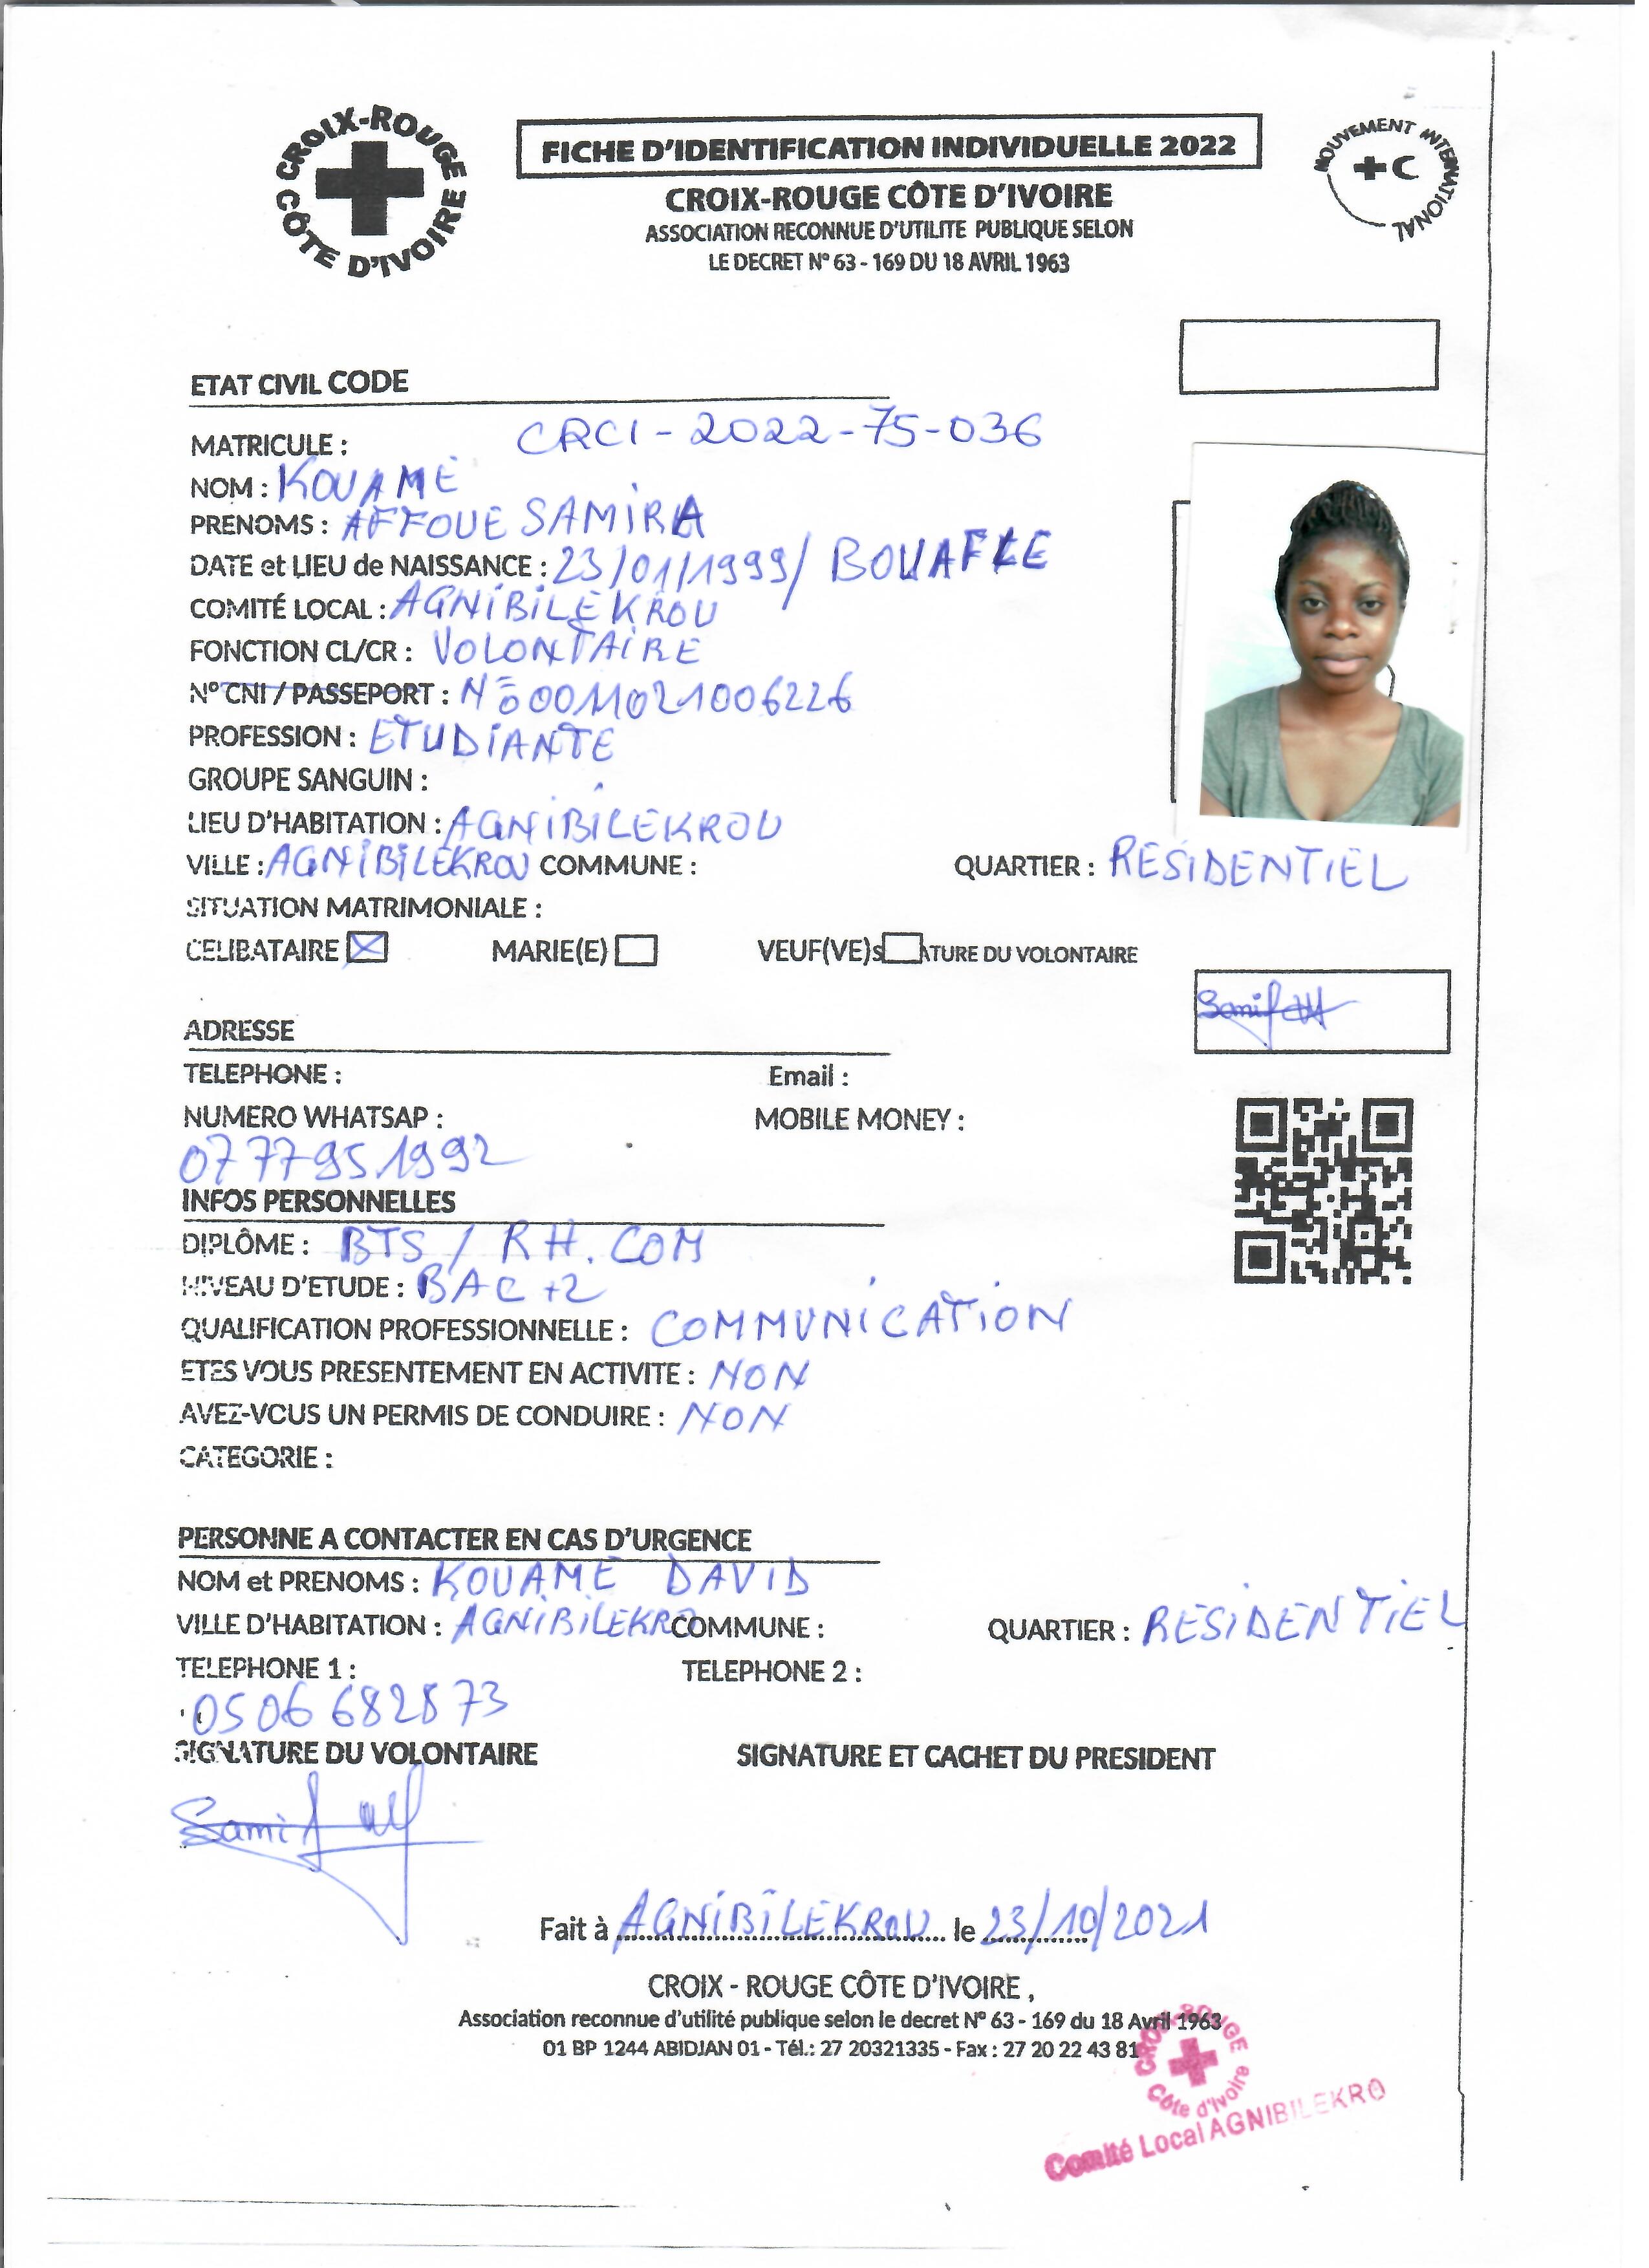 CROIX-ROUGE
CÔTE D'IVOIRE
FICHE D'IDENTIFICATION INDIVIDUELLE 2022
CROIX-ROUGE CÔTE D'IVOIRE
ASSOCIATION RECONNUE D'UTILITE PUBLIQUE SELON
LE DECRET N° 63 - 169 DU 18 AVRIL 1963
MOUVEMENT INTERNATIONAL
ETAT CIVIL CODE
MATRICULE : CRCI - 2022 - 75 - 036
NOM : KOUAME
PRENOMS : AFFOUE SAMIRA
DATE et LIEU de NAISSANCE : 23/01/1999/ BOUAFLE
COMITÉ LOCAL : AGNIBILEKROU
FONCTION CL/CR : VOLONTAIRE
N° CNI / PASSEPORT : N° 0011021006226
PROFESSION : ETUDIANTE
GROUPE SANGUIN :
LIEU D'HABITATION : AGNIBILEKROU
VILLE : AGNIBILEKROU COMMUNE : QUARTIER : RESIDENTIEL
SITUATION MATRIMONIALE :
CELIBATAIRE MARIE(E) VEUF(VE) ATURE DU VOLONTAIRE
ADRESSE
TELEPHONE : Email :
NUMERO WHATSAP : MOBILE MONEY :
07 77 95 1992
INFOS PERSONNELLES
DIPLÔME : BTS / RH. COM
NIVEAU D'ETUDE : BAC +2
QUALIFICATION PROFESSIONNELLE : COMMUNICATION
ETES VOUS PRESENTEMENT EN ACTIVITE : NON
AVEZ-VOUS UN PERMIS DE CONDUIRE : NON
CATEGORIE :
PERSONNE A CONTACTER EN CAS D'URGENCE
NOM et PRENOMS : KOUAME DAVID
VILLE D'HABITATION : AGNIBILEKRO COMMUNE : QUARTIER : RESIDENTIEL
TELEPHONE 1 : TELEPHONE 2 :
0506 682873
SIGNATURE DU VOLONTAIRE SIGNATURE ET CACHET DU PRESIDENT
Fait à AGNIBILEKROU le 23/10/2021
CROIX - ROUGE CÔTE D'IVOIRE ,
Association reconnue d'utilité publique selon le decret N° 63 - 169 du 18 Avril 1963
01 BP 1244 ABIDJAN 01 - Tél.: 27 20321335 - Fax : 27 20 22 43 81
CROIX-ROUGE
Côte d'Ivoire
Comité Local AGNIBILEKRO